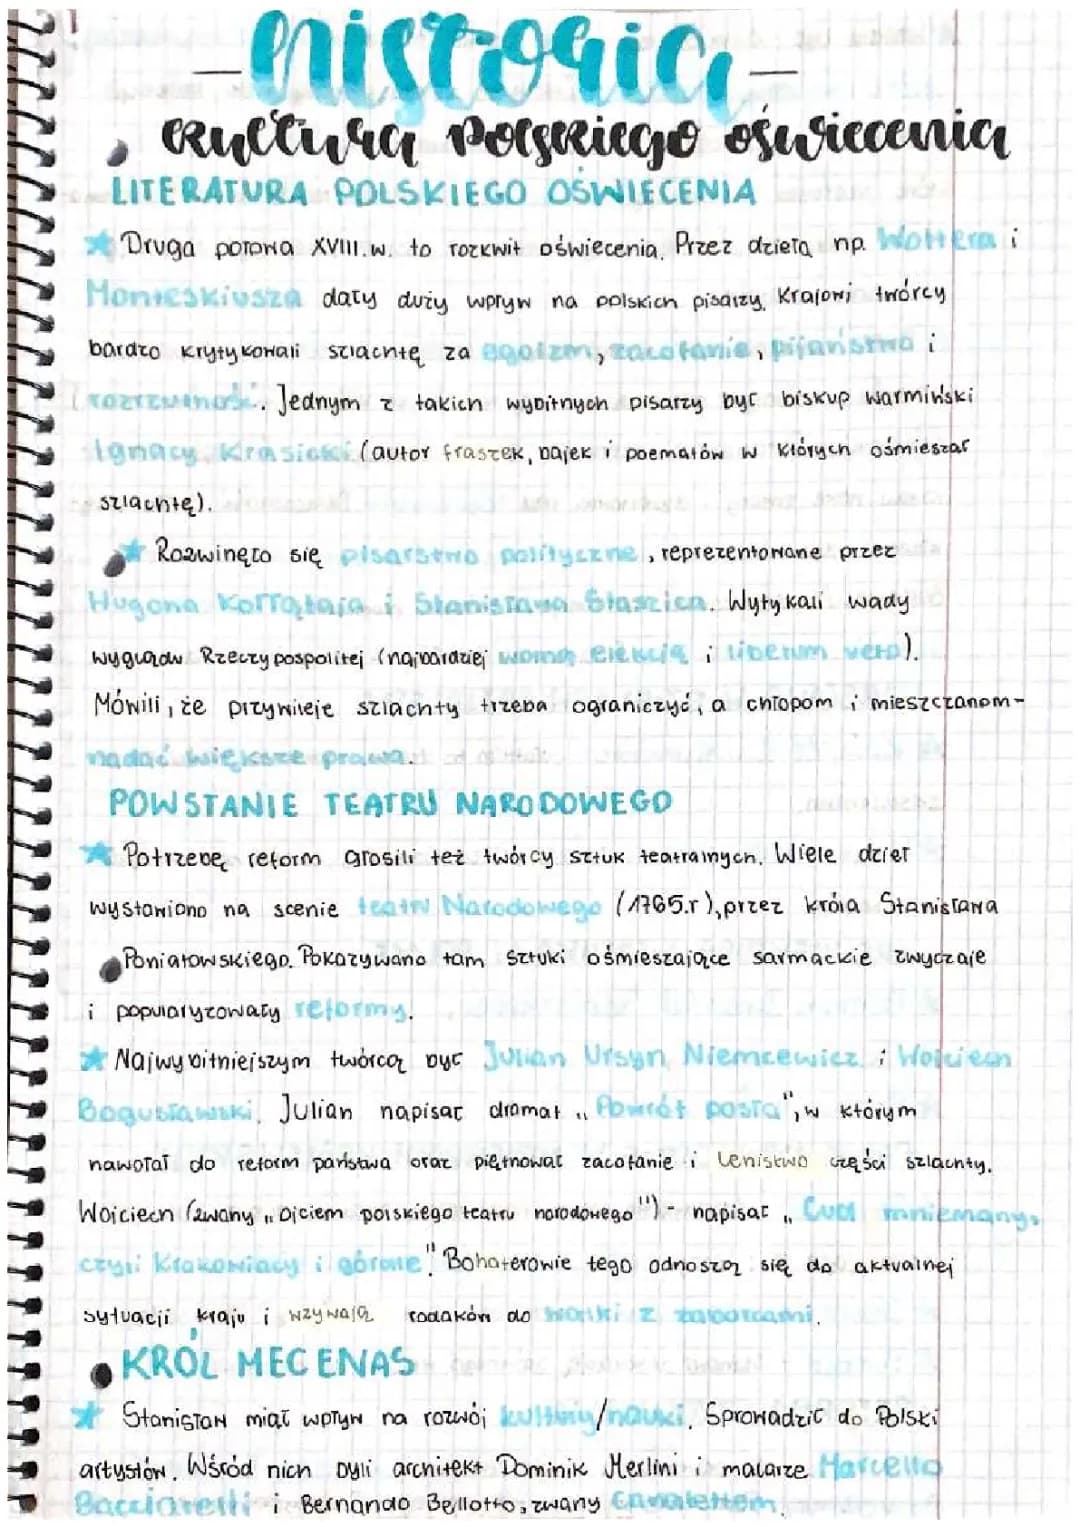 historia
kultura polskiego oświecenia
LITERATURA POLSKIEGO OŚWIECENIA
Druga połowa XVIII.w. to rozkwit oświecenia. Przez dzieła np. Woltera i
Monteskiusza dały duży wpływ na polskich pisarzy. Krajowi twórcy
bardzo krytykowali szlachtę za egoizm, zacofanie, pijaństwo i
rozrzutność. Jednym z takich wybitnych pisarzy był biskup warmiński
Ignacy Krasicki (autor fraszek, bajek i poematów w których ośmieszał
szlachtę).
Rozwinęło się pisarstwo polityczne, reprezentowane przez
Hugona Kołłątaja i Stanisława Staszica. Wytykali wady
wyglądw Rzeczypospolitej (najbardziej wolną elekcję i liberum veto).
Mówili, że przywileje szlachty trzeba ograniczyć, a chłopom i mieszczanom-
nadać większe prawa.
POWSTANIE TEATRU NARODOWEGO
Potrzebę reform głosili też twórcy sztuk teatralnych. Wiele dzieł
wystawiono na scenie teatru Narodowego (1765.r), przez króla Stanisława
Poniatowskiego. Pokazywano tam sztuki ośmieszające sarmackie zwyczaje
i popularyzowały reformy.
Najwybitniejszym twórcą był Julian Ursyn Niemcewicz i Wojciech
Bogusławski. Julian napisał dramat „Powrót posła", w którym
nawołał do reform państwa oraz piętnował zacofanie i lenistwo części szlachty.
Wojciech (zwany „ojciem polskiego teatru narodowego") - napisał „Cud mniemany,
czyli Krakowiacy i górale". Bohaterowie tego odnoszą się do aktualnej
sytuacji kraju i wzywają rodaków do walki z zaborcami.
KRÓL MECENAS
Stanisław miał wpływ na rozwój kultury/nauki. Sprowadził do Polski
artystów. Wśród nich byli architekt Dominik Merlini i malarze Marcello
Bacciarelli i Bernando Bellotto, zwany Canalettem.